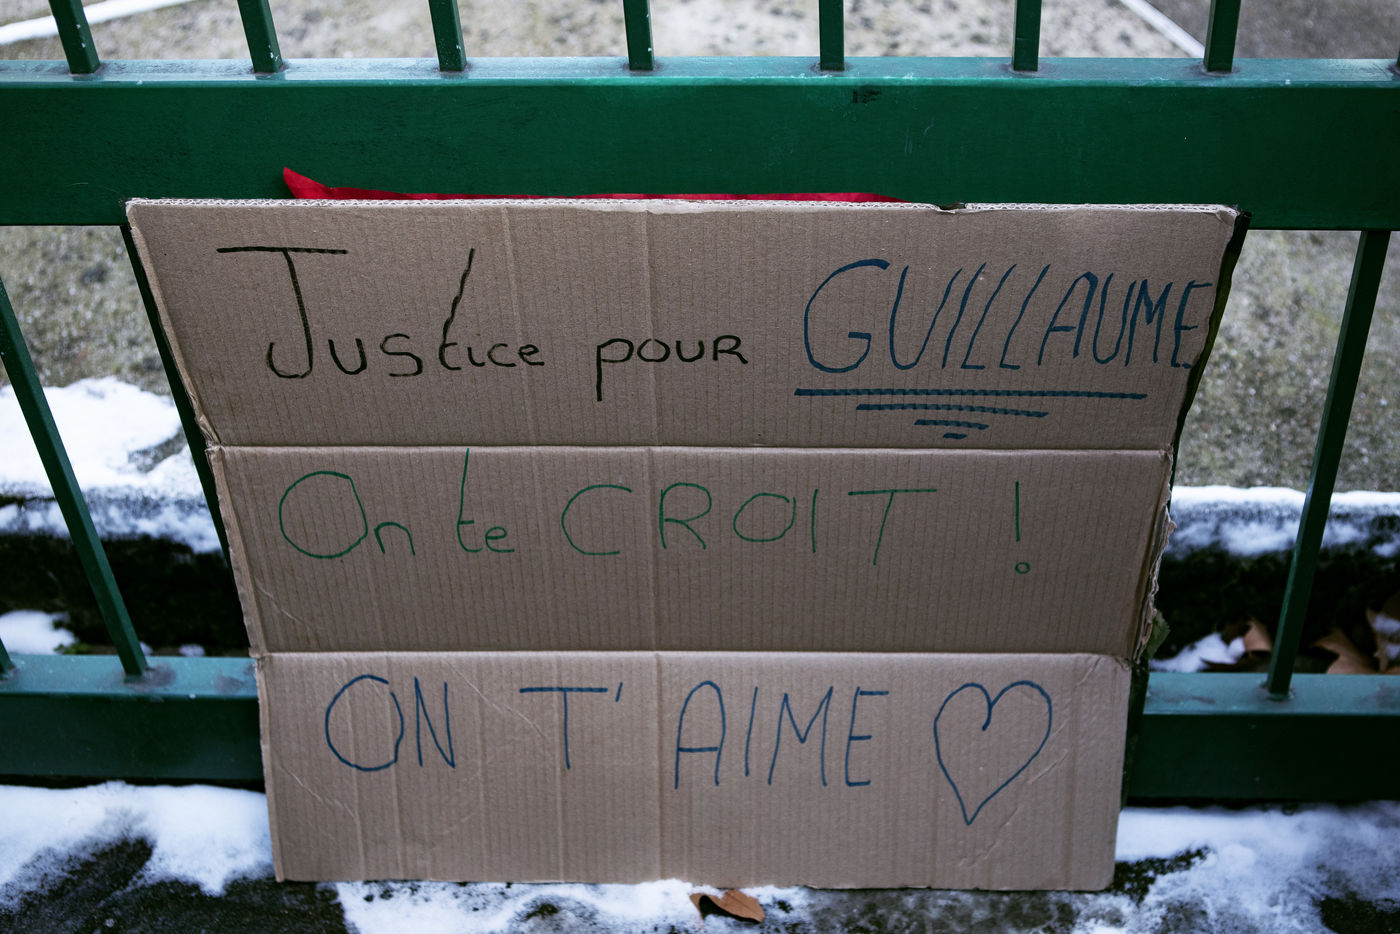 Justice pour GUILLAUME
On te CROIT !
ON T'AIME